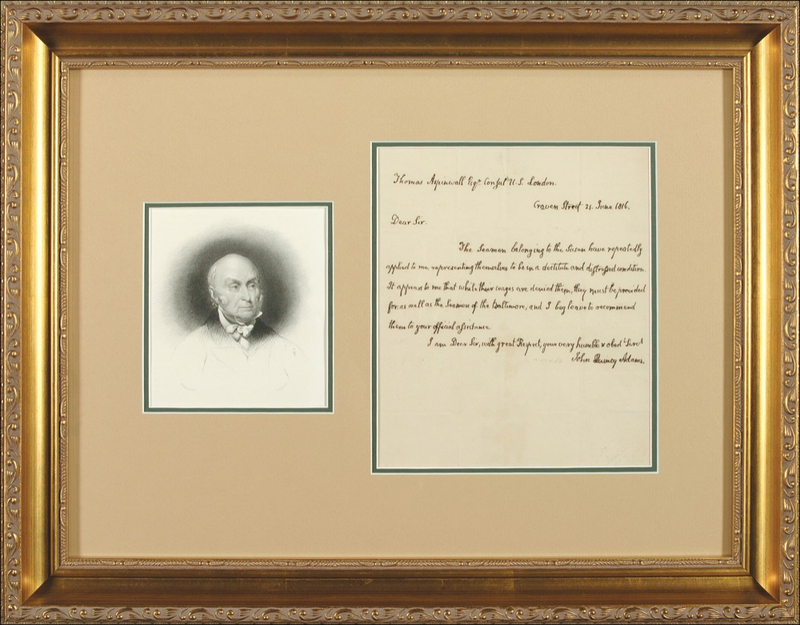 Thomas Aspinwall Esqr. Consul U.S. London.
Craven Street 21. June 1816.
Dear Sir.
The Seamen belonging to the have repeatedly
applied to me representing themselves to be in a destitute and distressed condition.
It appears to me that while their wages are denied them, they must be provided
for as well as the Seamen of the Baltimore, and I beg leave to recommend
them to your official assistance.
I am Dear Sir, with great Respect, your very humble & obed.t Serv.t
John Quincy Adams.